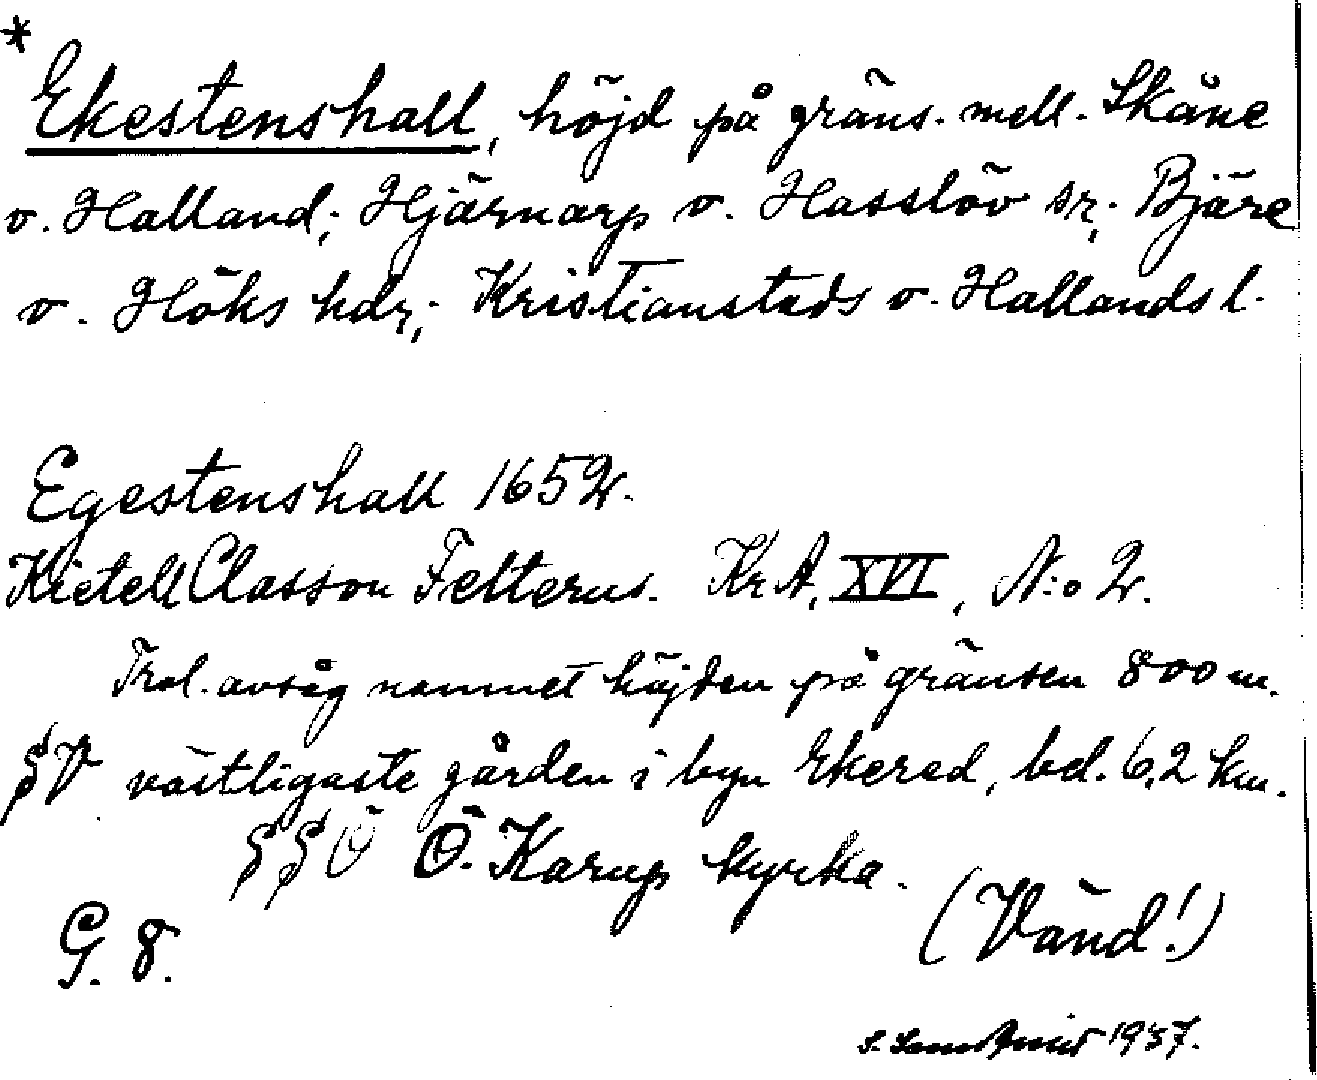 *
Ekestenshall, höjd på gräns. mell. Skåne
o. Halland; Hjärnarp o. Hasslöv sr; Bjäre
o. Höks hdr; Kristianstads o. Hallands l.
Egestenshall 1652.
Kietell Classon Felterus. Kr.A. XVI, N:o 2.
Trol. avsåg namnet höjden på gränsen 800 m.
§V västligaste gården i byn Ekered, bel. 6,2 km.
§§Ö Ö. Karup kyrka.
(Vänd!)
G. 8.
1937.